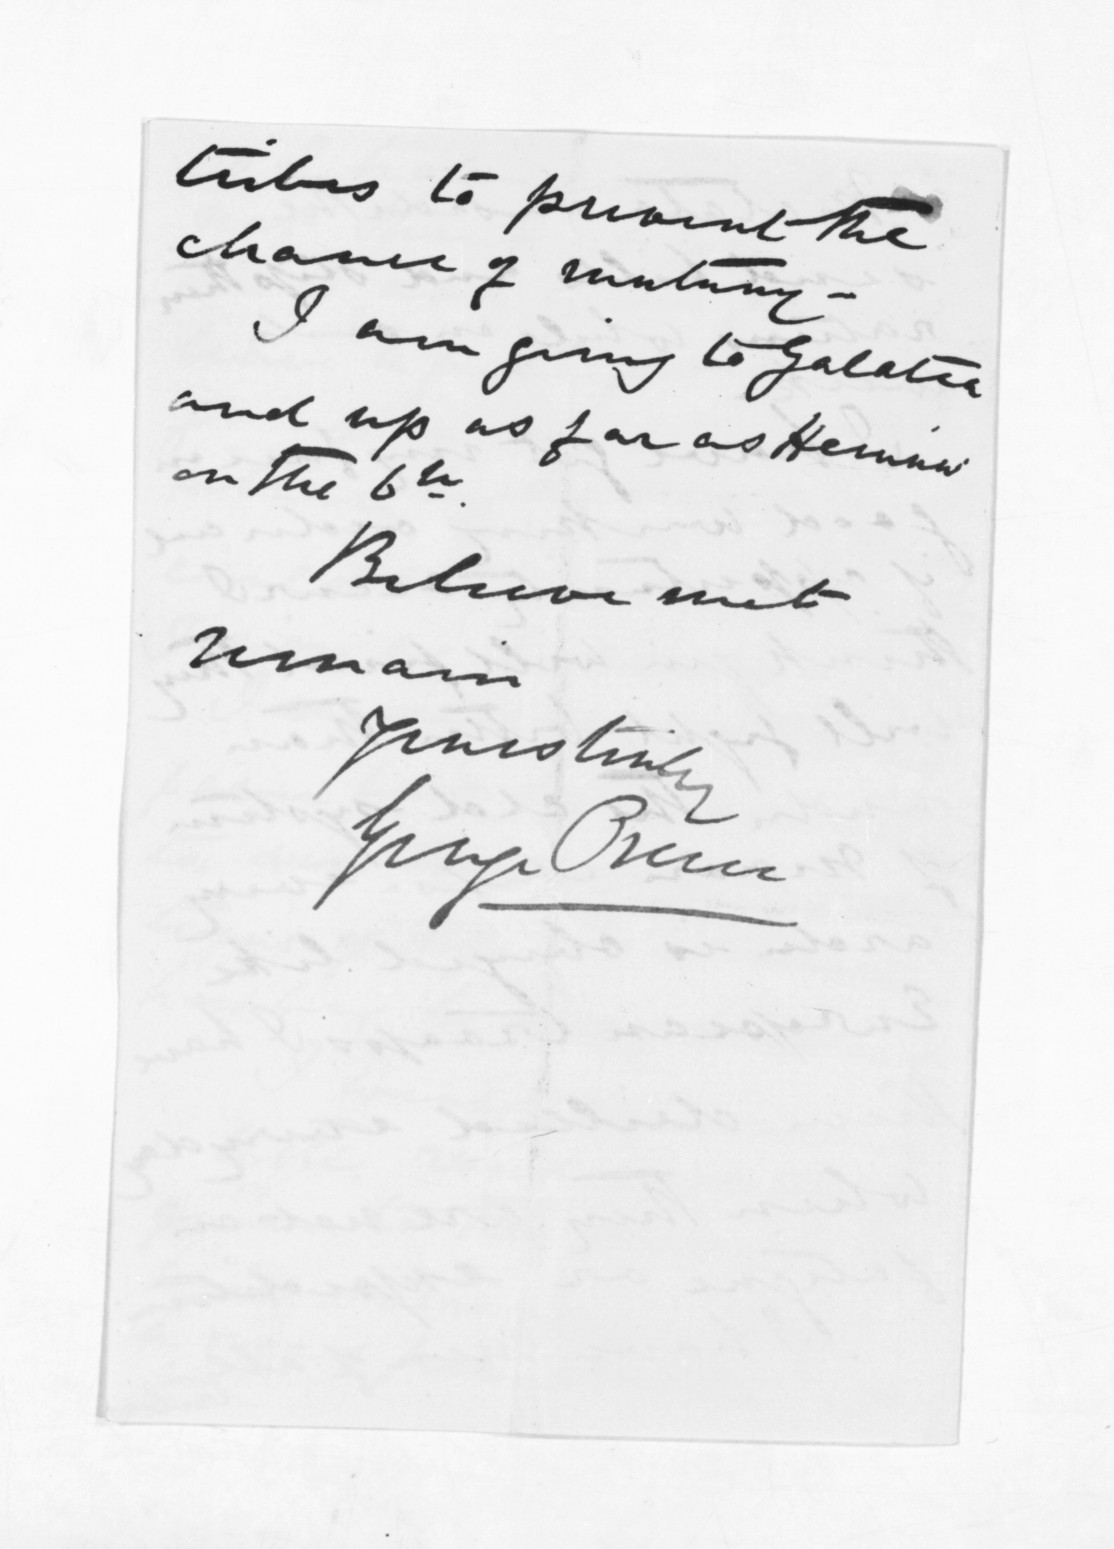 tribes to prevent the
chance of mutiny -
I am going to Galatea
and up as far as
on the 6th.
Believe me to
remain
Yours truly
George Preece